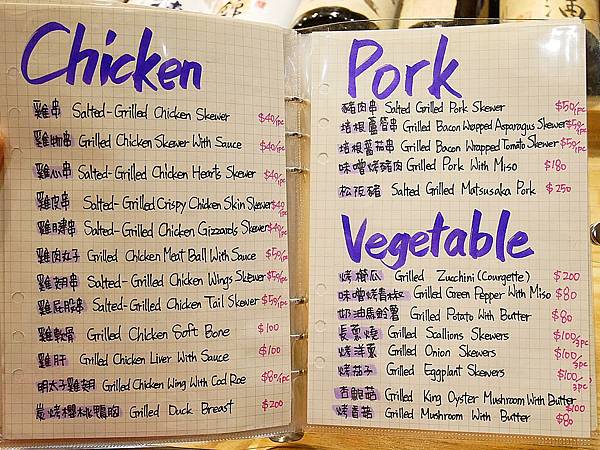 Chicken
雞串 Salted-Grilled Chicken Skewer $40/pc
Grilled Chicken Skewer With Sauce $40/pc
雞心串 Salted-Grilled Chicken Hearts Skewer $40/pc
雞皮串 Salted-Grilled Crispy Chicken Skin Skewer $40/pc
雞腱串 Salted-Grilled Chicken Gizzards Skewer $40/pc
雞肉丸子 Grilled Chicken Meat Ball With Sauce $50/pc
雞翅串 Salted-Grilled Chicken Wings Skewer $50/pc
雞屁股串 Salted-Grilled Chicken Tail Skewer $50/pc
雞軟骨 Grilled Chicken Soft Bone $100
雞肝 Grilled Chicken Liver With Sauce $100
明太子雞翅 Grilled Chicken Wing With Cod Roe $80/pc
炭烤櫻桃鴨胸 Grilled Duck Breast $200
Pork
豬肉串 Salted Grilled Pork Skewer $50/pc
培根蘆筍串 Grilled Bacon Wrapped Asparagus Skewer $50/pc
培根番茄串 Grilled Bacon Wrapped Tomato Skewer $50/pc
味噌烤豬肉 Grilled Pork With Miso $180
松阪豬 Salted Grilled Matsusaka Pork $250
Vegetable
烤櫛瓜 Grilled Zucchini (Courgette) $200
味噌烤青椒 Grilled Green Pepper With Miso $80
奶油馬鈴薯 Grilled Potato With Butter $80
長蔥燒 Grilled Scallions Skewers $100/3pc
烤洋蔥 Grilled Onion Skewers $100/3pc
烤茄子 Grilled Eggplant Skewers $100/3pc
杏鮑菇 Grilled King Oyster Mushroom With Butter $100
烤香菇 Grilled Mushroom With Butter $80